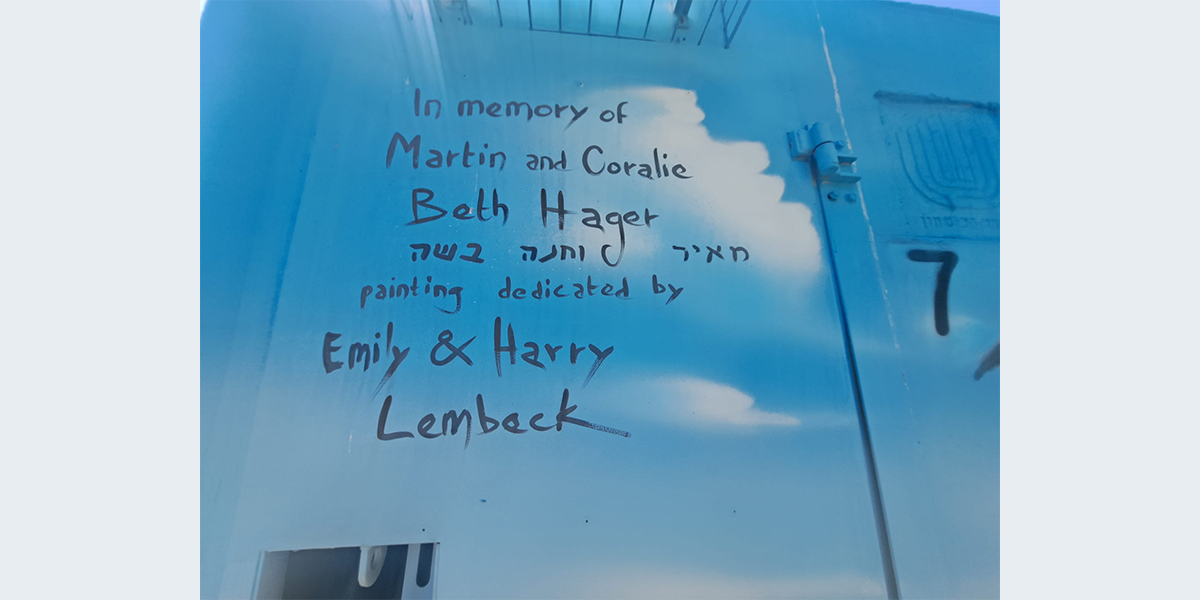 In memory of
Martin and Coralie
Beth Hager
מאיר וחנה בשה
painting dedicated by
Emily & Harry
Lembeck
7